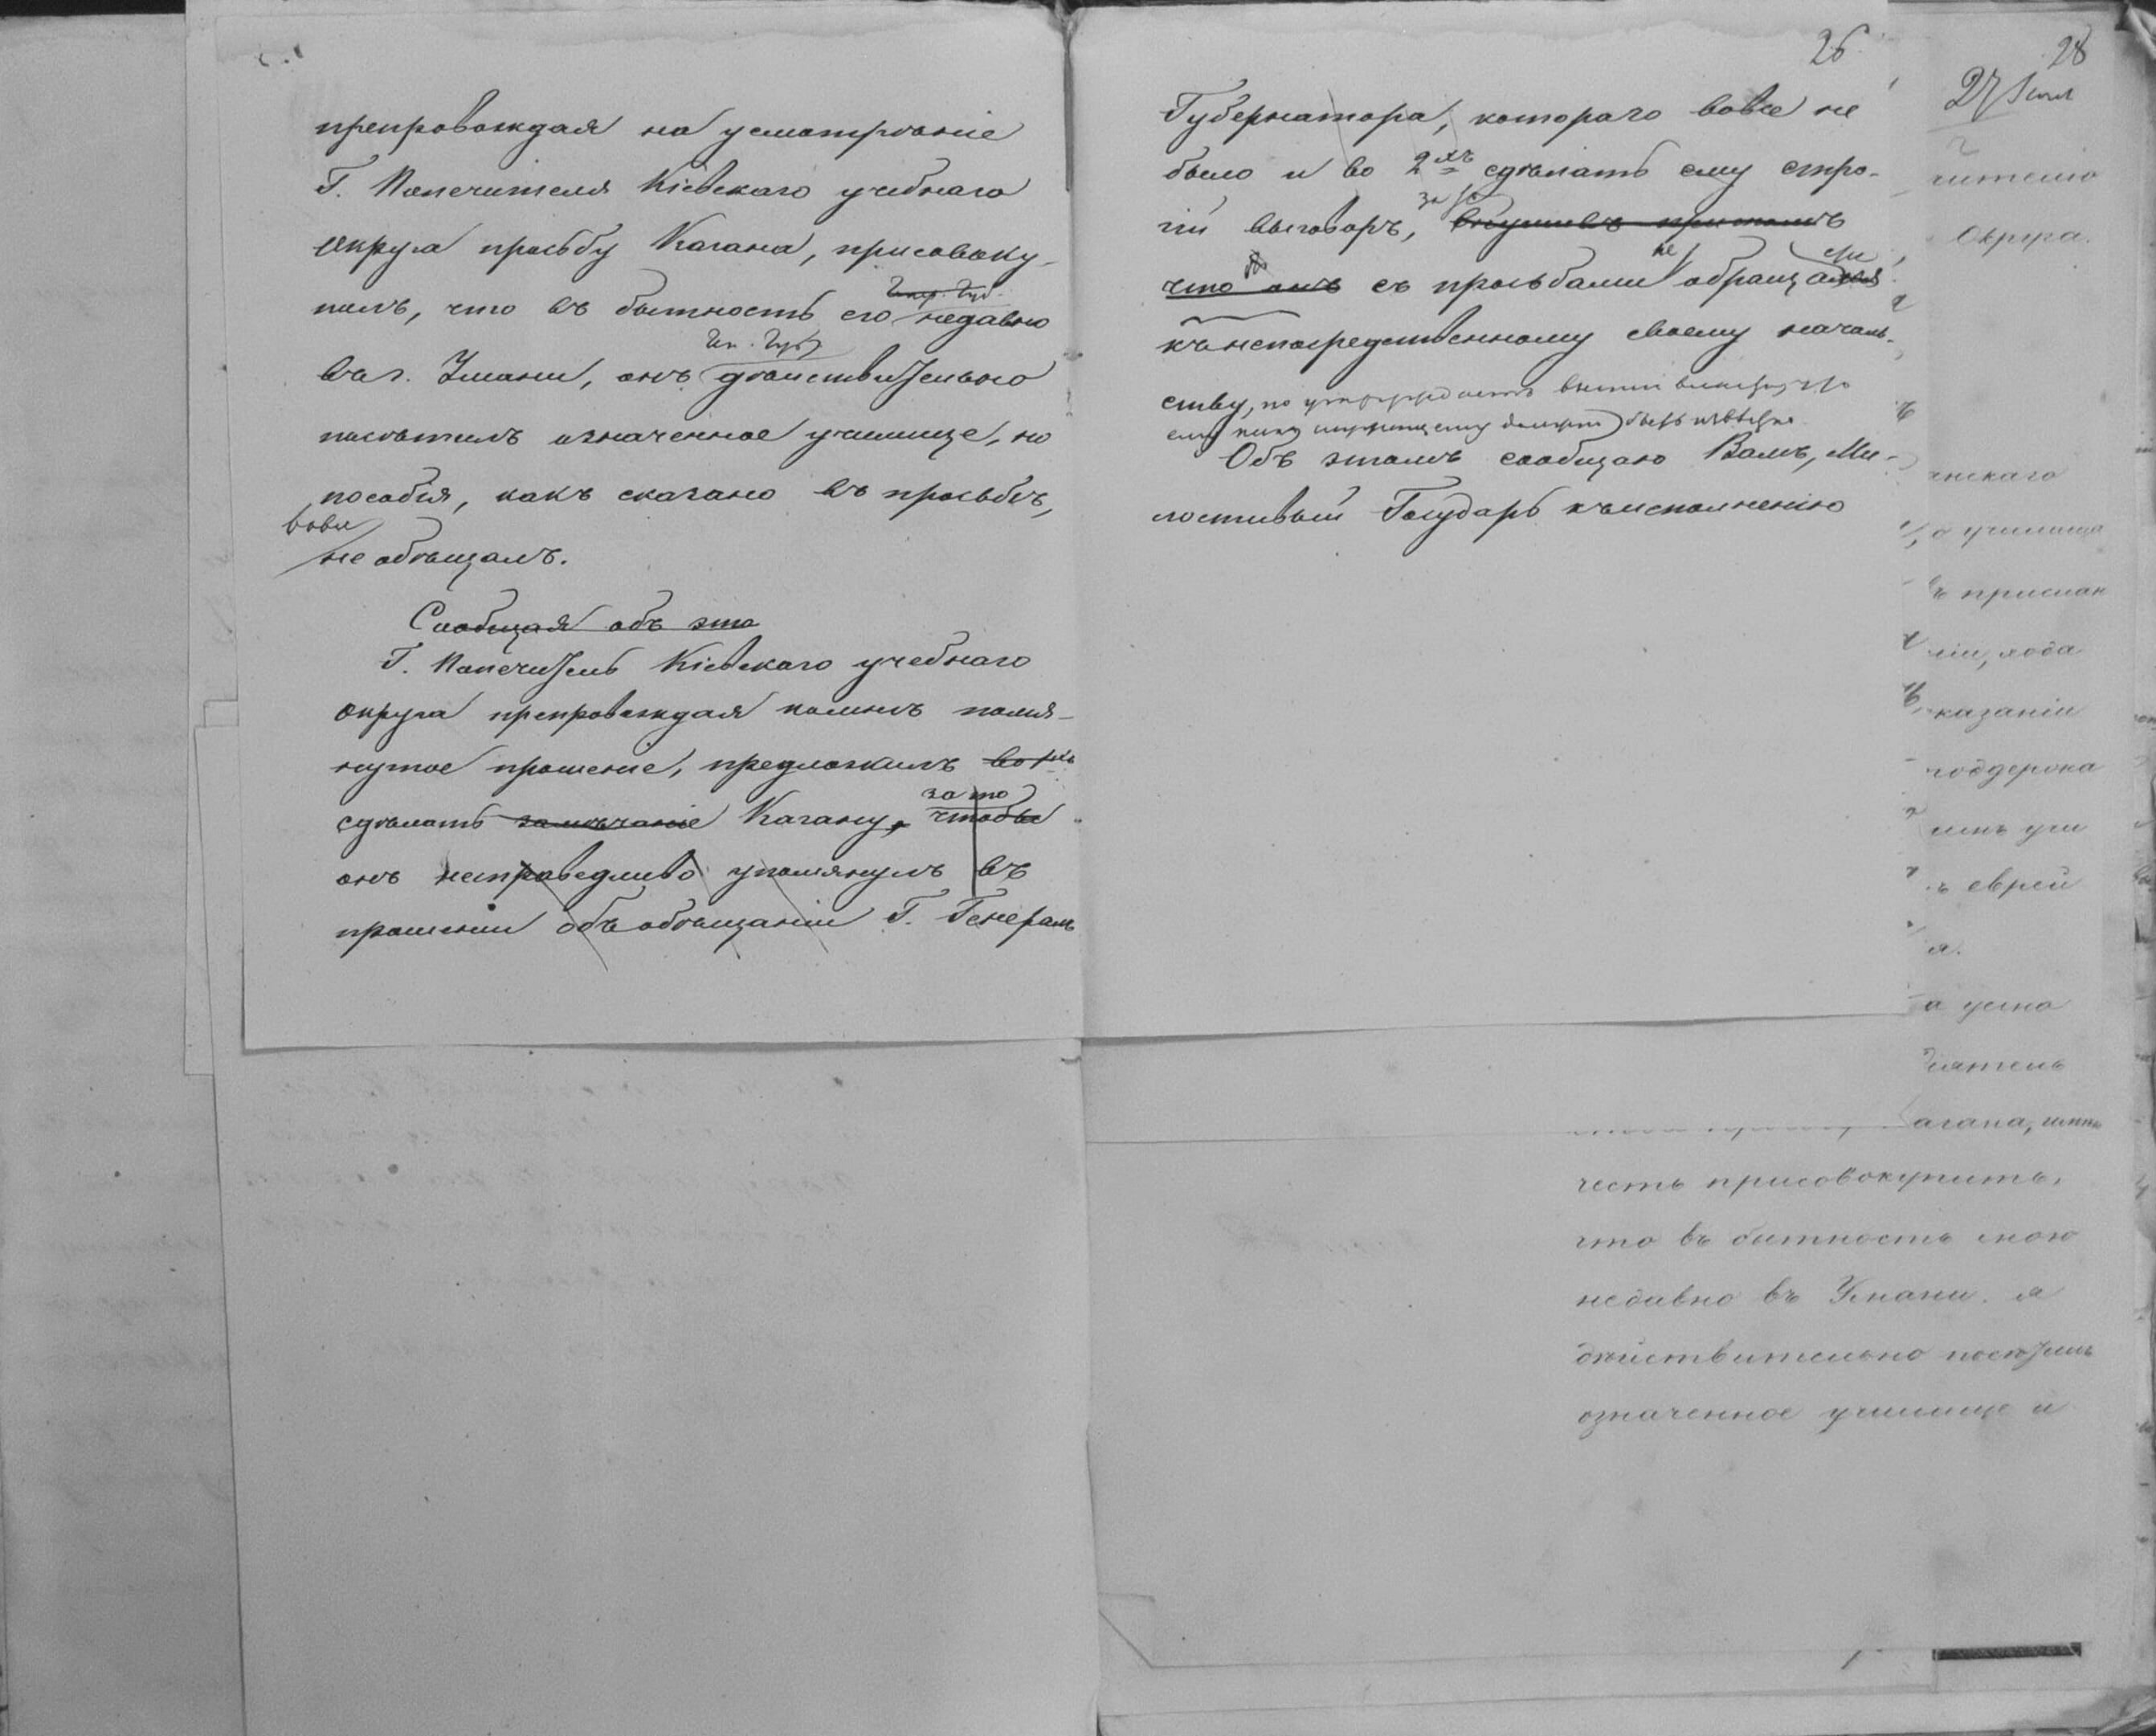 препровождая на усмотрѣніе
Г. Попечителя Кіевскаго учебнаго
округа просьбу Кагана, присовоку-
пилъ, что въ бытность его недавно
въ г. Умани, онъ дѣйствительно
посѣтилъ означенное училище, но
пособія, какъ сказано въ просьбѣ,
вовсе
не обѣщалъ.
Сообщая объ это
Г. Попечитель Кіевскаго учебнаго
округа препровождая ко мнѣ помя-
нутое прошеніе, предложилъ
за то
сдѣлать замѣчаніе Кагану, чтобы
онъ несправедливо упомянулъ въ
прошеніи объ обѣщаніи Г. Генералъ
26
Губернатора, котораго вовсе не
было и во 2хъ сдѣлать ему стро-
гій выговоръ,
что онъ съ просьбами не обращался
къ непосредственному своему началь-
ству, по
Объ этомъ сообщаю Вамъ, Ми-
лостивый Государь къ исполненію
28
27
чителю
Округа.
анскаго
о училища
ъ прислан
казаніи
поддержа
ъ еврей
я.
агана, имѣю
честь присовокупить,
что въ бытность мою
недавно въ Умани я
дѣйствительно посѣтилъ
означенное училище и